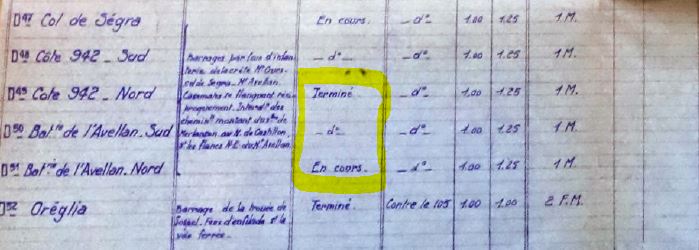 D47 Col de Ségra En cours. _ d°_ 1.00 1.25 1 M.
D48 Côte 942 _ Sud _ d°_ _ d°_ 1.00 1.25 1 M.
Barrages par feu d'infan
terie de la crête Mt Ours
col de Segra _ Mt Avellan.
D49 Cote 942 _ Nord Terminé _ d°_ 1.00 1.25 1 M.
Casemates se flanquant réci
proquement. Interdon des
chemins montant du
D50 Batrie de l'Avellan. Sud _ d°_ _ d°_ 1.00 1.25 1 M.
au N. de Castillon
et les flancs N.E. du Mt Avellan.
D51 Batrie de l'Avellan. Nord En cours. _ d°_ 1.00 1.25 1 M.
D52 Oréglia Terminé Contre le 105 1.00 1.00 2 F.M.
Barrage de la trouée de
Sospel. Feux d'enfilade st la
voie ferrée._